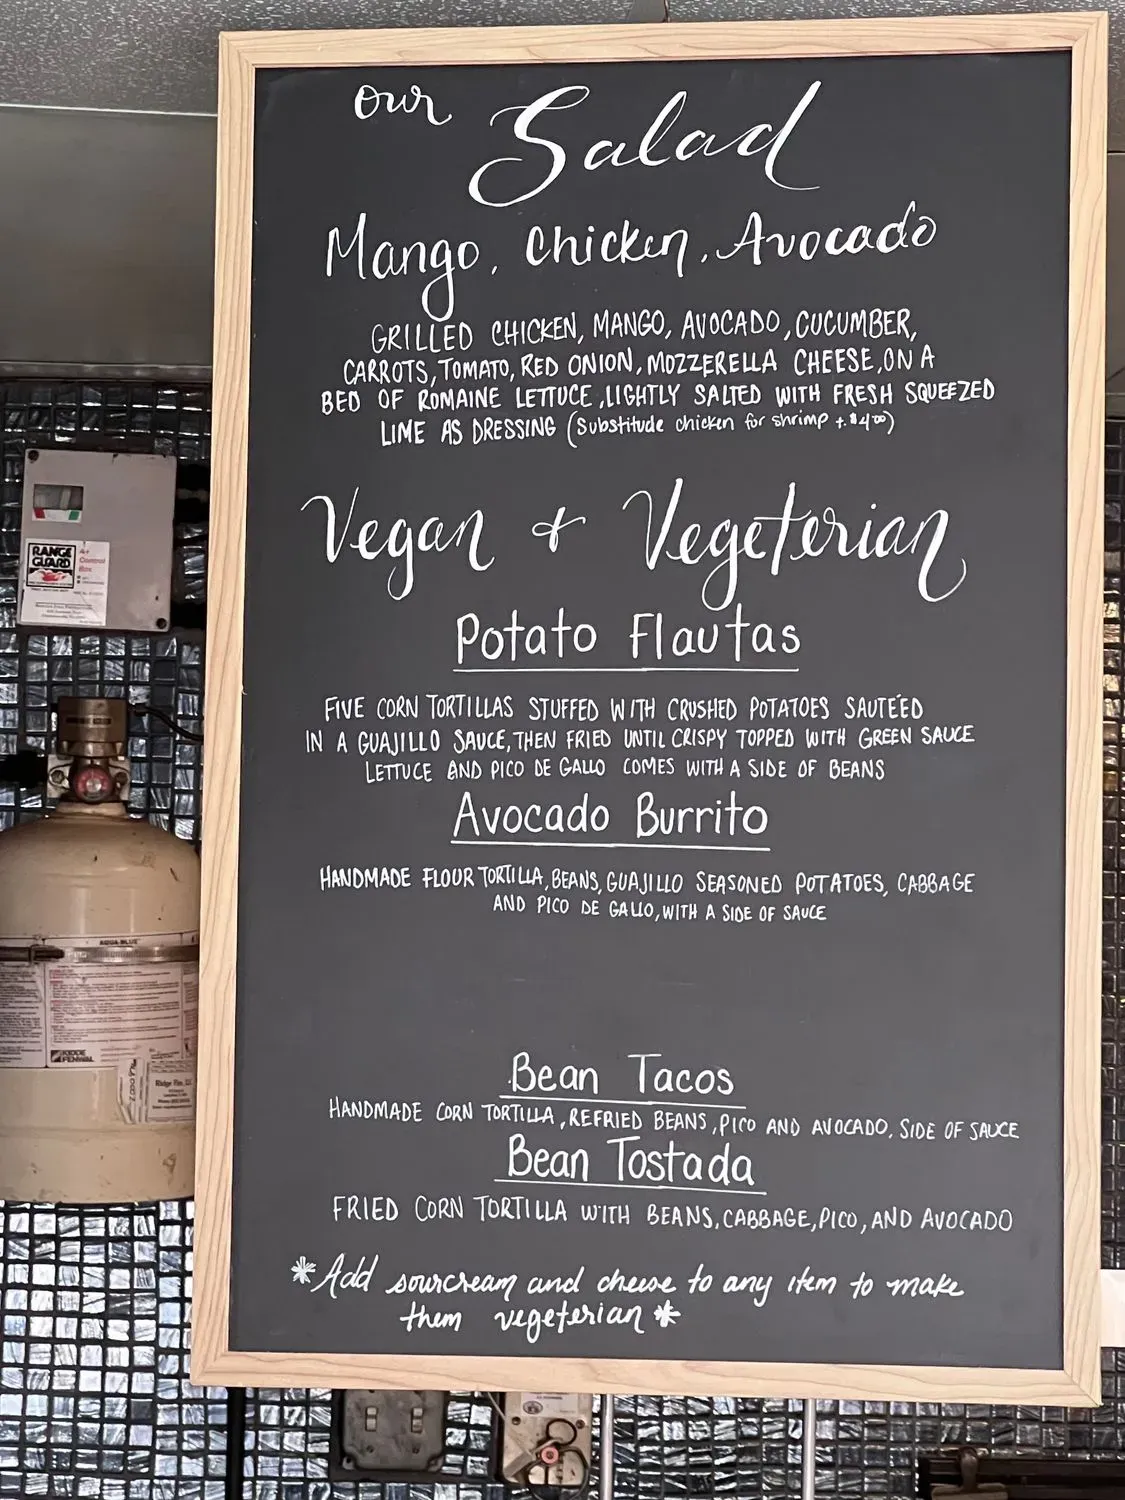 our Salad
Mango, Chicken, Avocado
GRILLED CHICKEN, MANGO, AVOCADO, CUCUMBER,
CARROTS, TOMATO, RED ONION, MOZZERELLA CHEESE, ON A
BED OF ROMAINE LETTUCE, LIGHTLY SALTED WITH FRESH SQUEEZED
LIME AS DRESSING (Substitude chicken for shrimp +.$4.00)
Vegan + Vegeterian
Potato Flautas
FIVE CORN TORTILLAS STUFFED WITH CRUSHED POTATOES SAUTÉED
IN A GUAJILLO SAUCE, THEN FRIED UNTIL CRISPY TOPPED WITH GREEN SAUCE
LETTUCE AND PICO DE GALLO COMES WITH A SIDE OF BEANS
Avocado Burrito
HANDMADE FLOUR TORTILLA, BEANS, GUAJILLO SEASONED POTATOES, CABBAGE
AND PICO DE GALLO, WITH A SIDE OF SAUCE
Bean Tacos
HANDMADE CORN TORTILLA, REFRIED BEANS, PICO AND AVOCADO. SIDE OF SAUCE
Bean Tostada
FRIED CORN TORTILLA WITH BEANS, CABBAGE, PICO, AND AVOCADO
*Add sourcream and cheese to any item to make
them vegeterian*
RANGE
GUARD
A+
Control
Box
AQUA BLUE
KIDDE
FENWAL